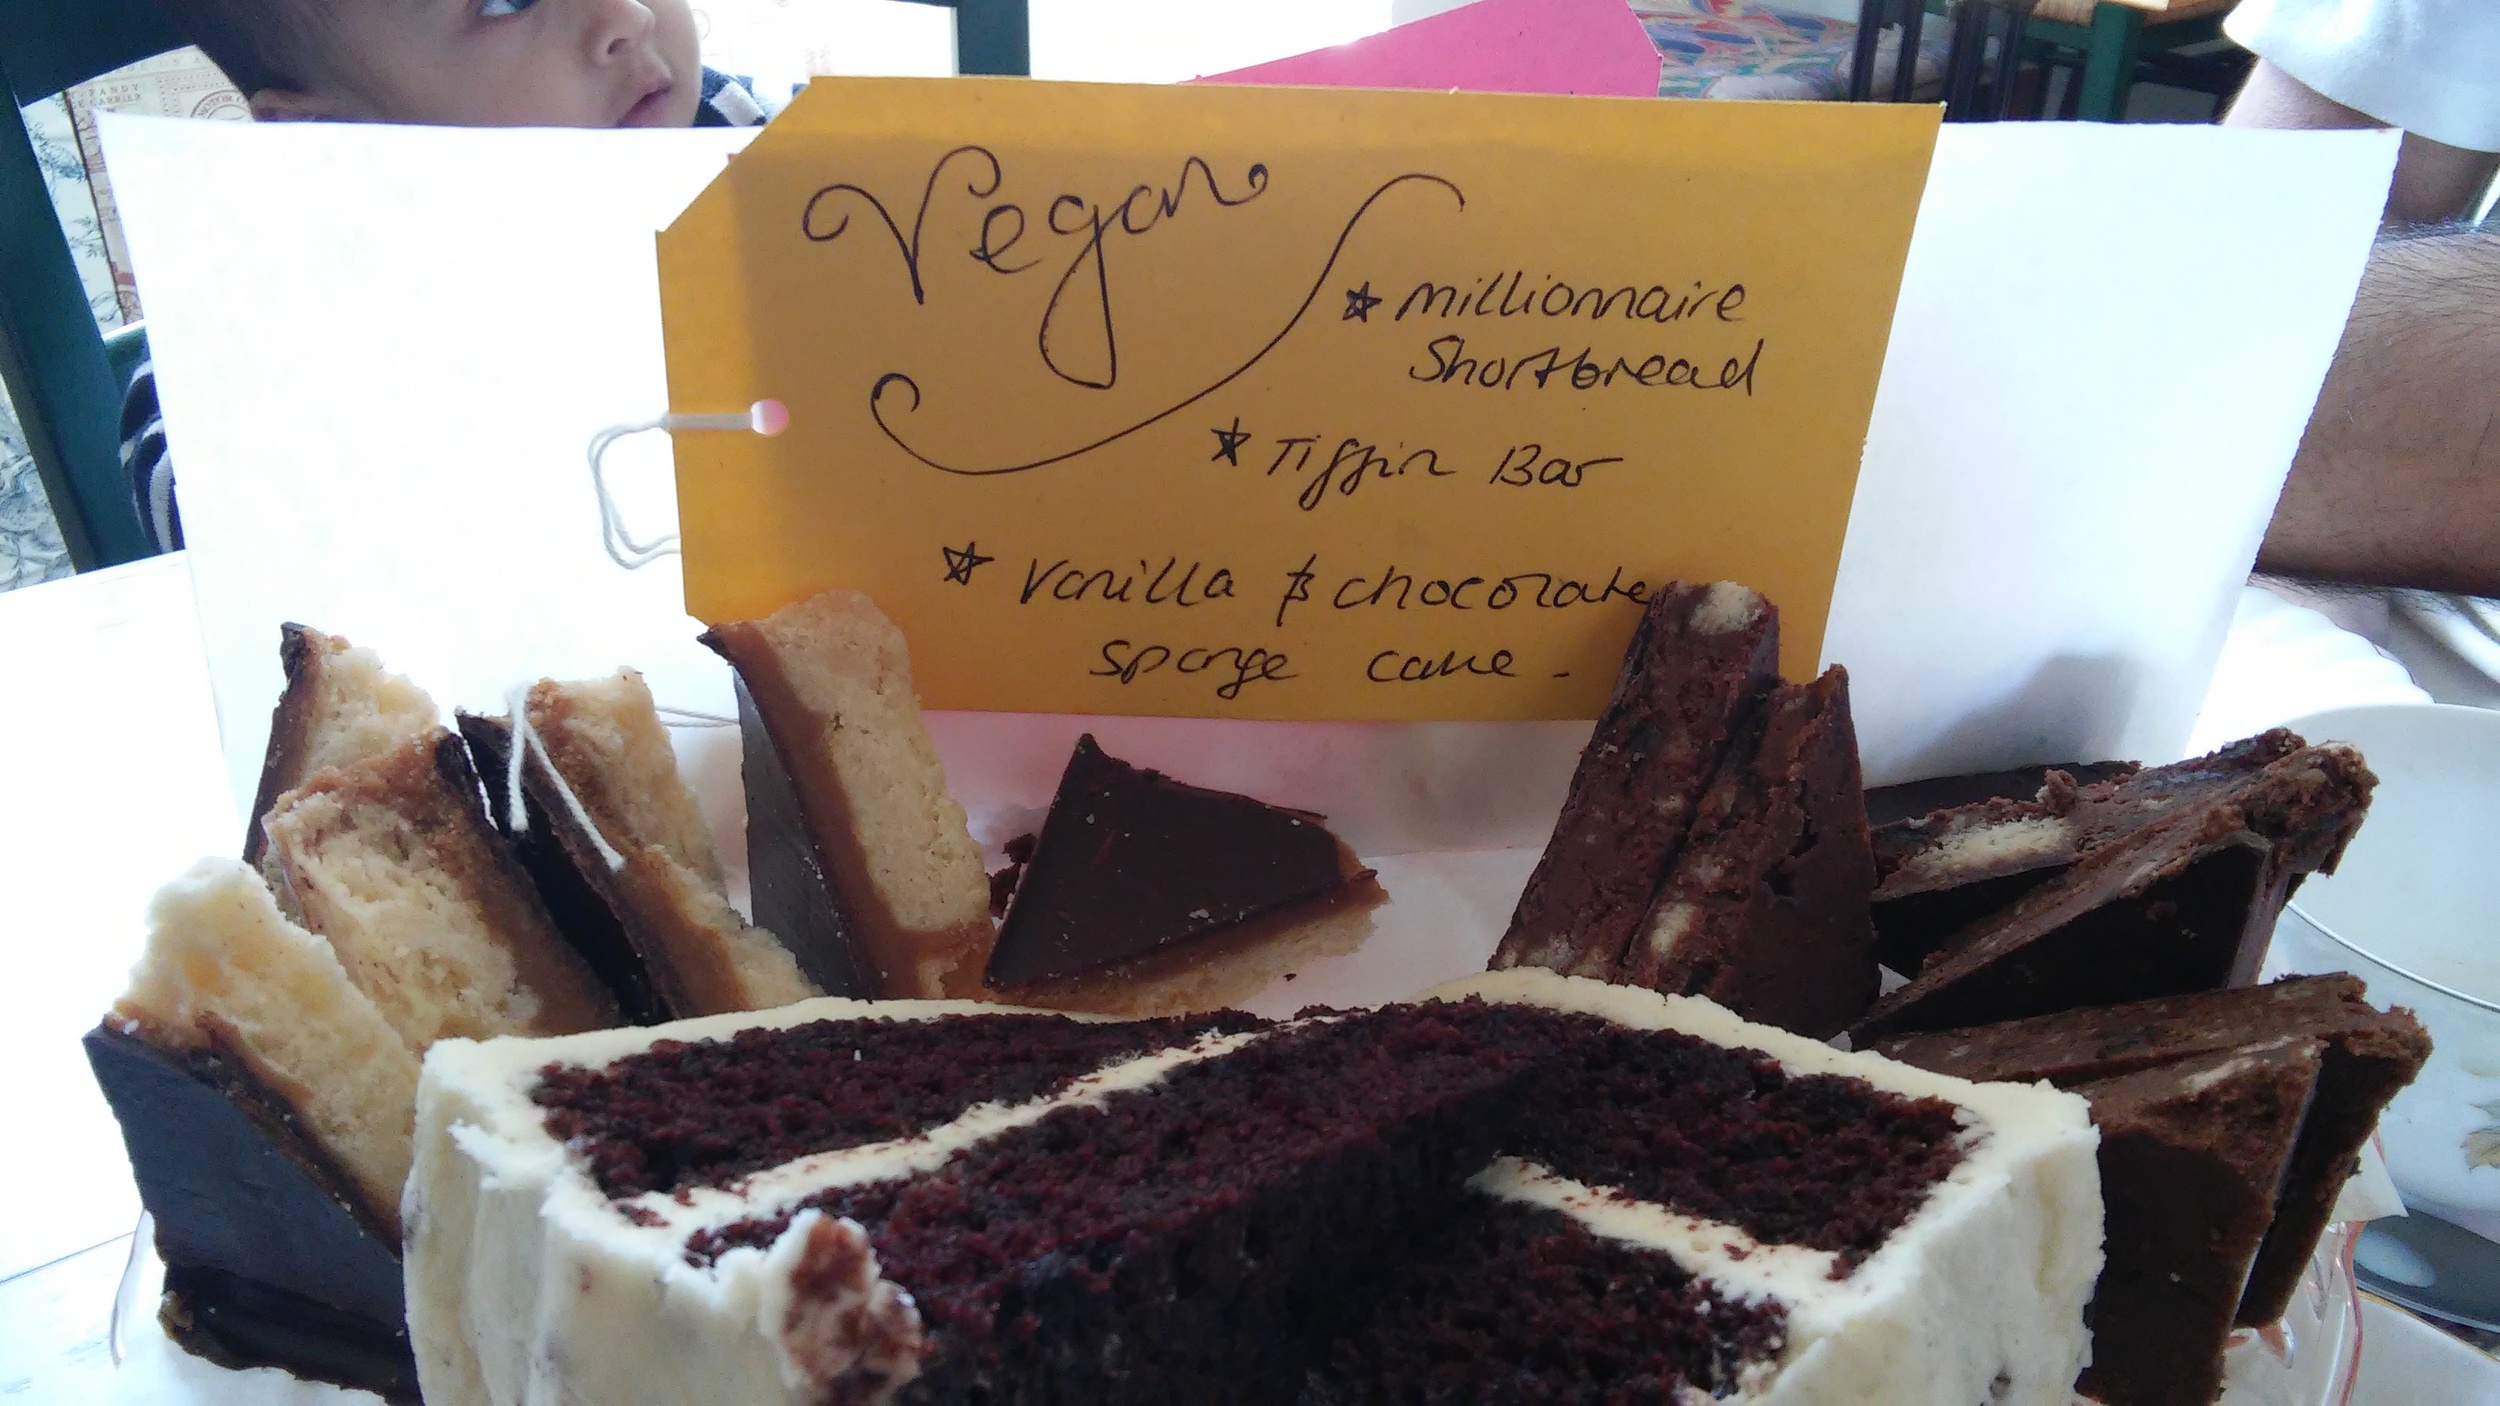 Vegan
☆ millionnaire
Shortbread
☆ Tiffin Bar
☆ Vanilla & chocolate
sponge cake -